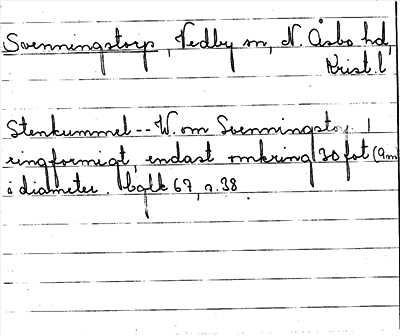 Svenningstorp, Vedby sn, N. Åsbo hd,
Krist. l
Stenkummel -- W. om Svenningstor
ringformigt, endast omkring 30 fot (9m)
i diameter. bglk 67, s. 38.